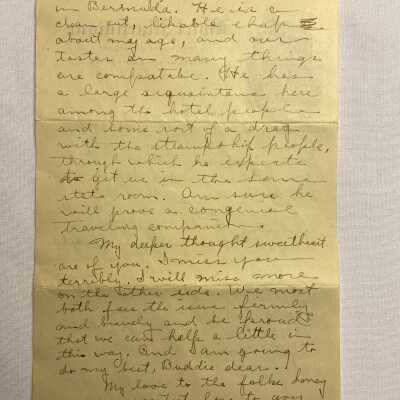 in Bermuda. He is a
clean cut, likable chap
about my age, and our
tastes in many things
are compatible. He has
a large acquaintance here
among the hotel people
and some sort of a drag
with the steamship people,
through which he expects
to get us in the same
state room. Am sure he
will prove a congenial
traveling companion.
My deeper thought sweetheart
are of you. I miss you
terribly. I will miss more
on the other side. We must
both face the issue firmly
and bravely and be proud
that we can help a little in
this way. And I am going to
do my best, Buddie dear.
My love to the folks honey
love to you